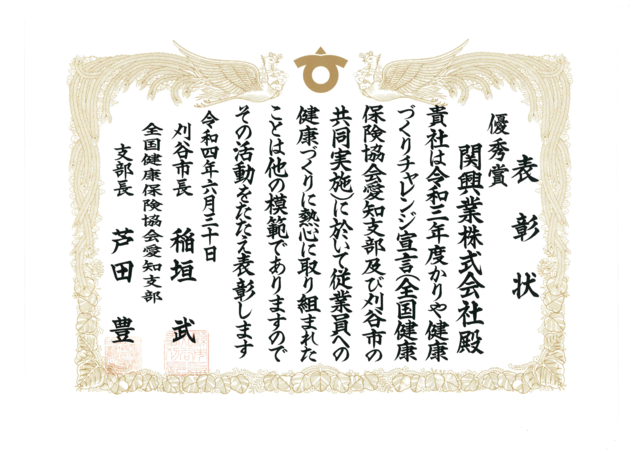 表彰状
優秀賞
関興業株式会社殿
貴社は令和三年度かりや健康
づくりチャレンジ宣言(全国健康
保険協会愛知支部及び刈谷市の
共同実施)に於いて従業員への
健康づくりに熱心に取り組まれた
ことは他の模範でありますので
その活動をたたえ表彰します
令和四年六月三十日
刈谷市長 稲垣 武
全国健康保険協会愛知支部
支部長 芦田 豊